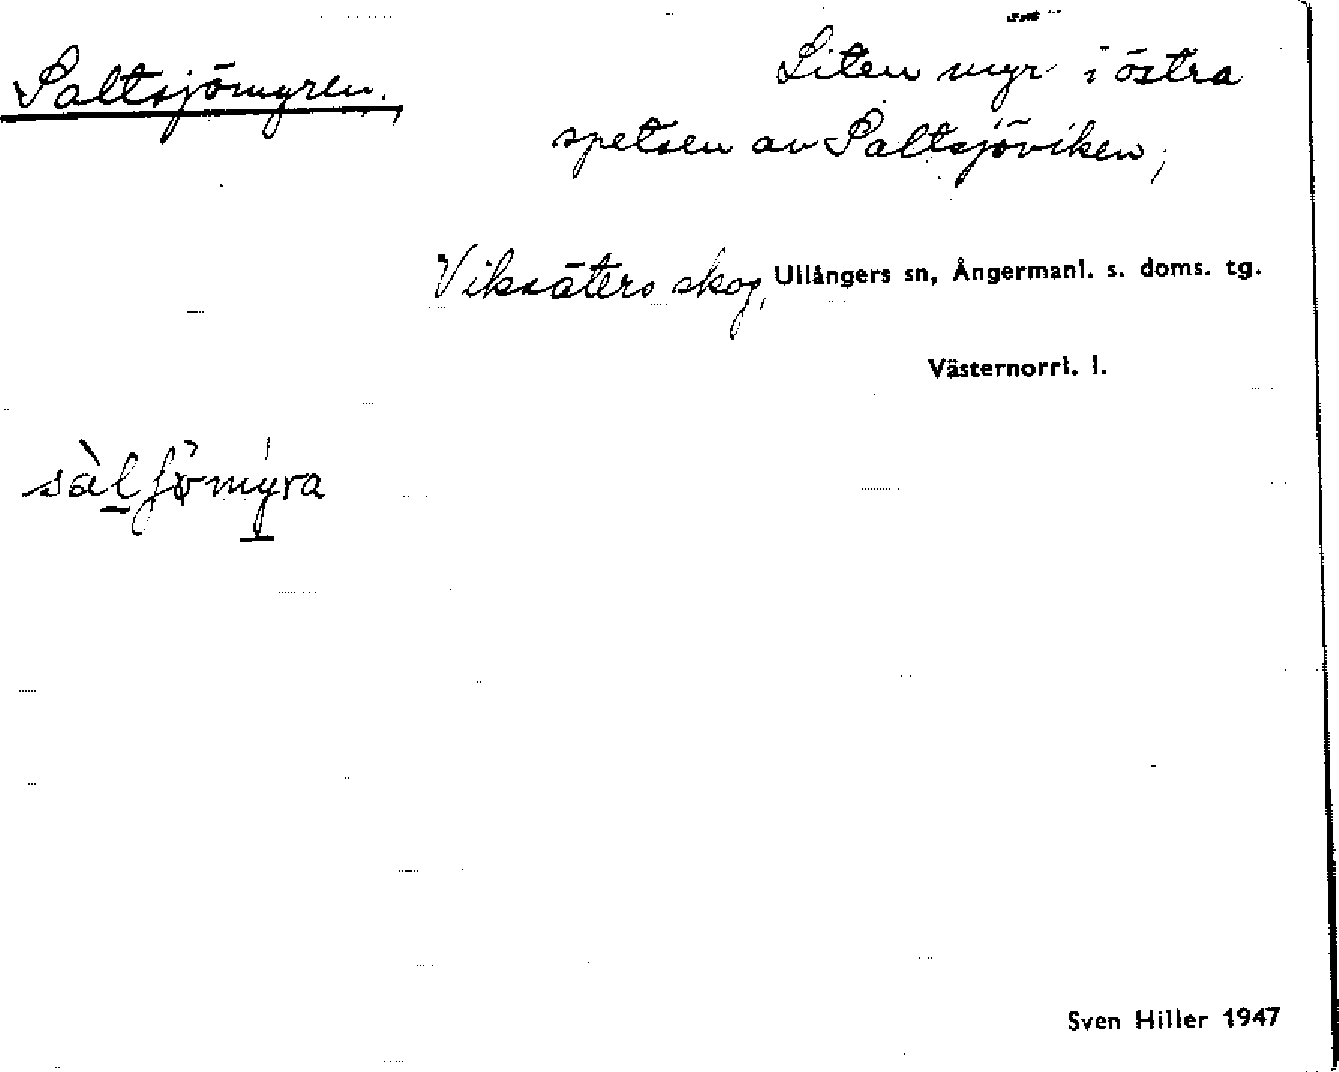 Saltsjömyren.
Liten myr i östra
spetsen av Saltsjöviken,
Viksäters skog, Ullångers sn, Ångermanl. s. doms. tg.
Västernorrl. l.
Sven Hiller 1947